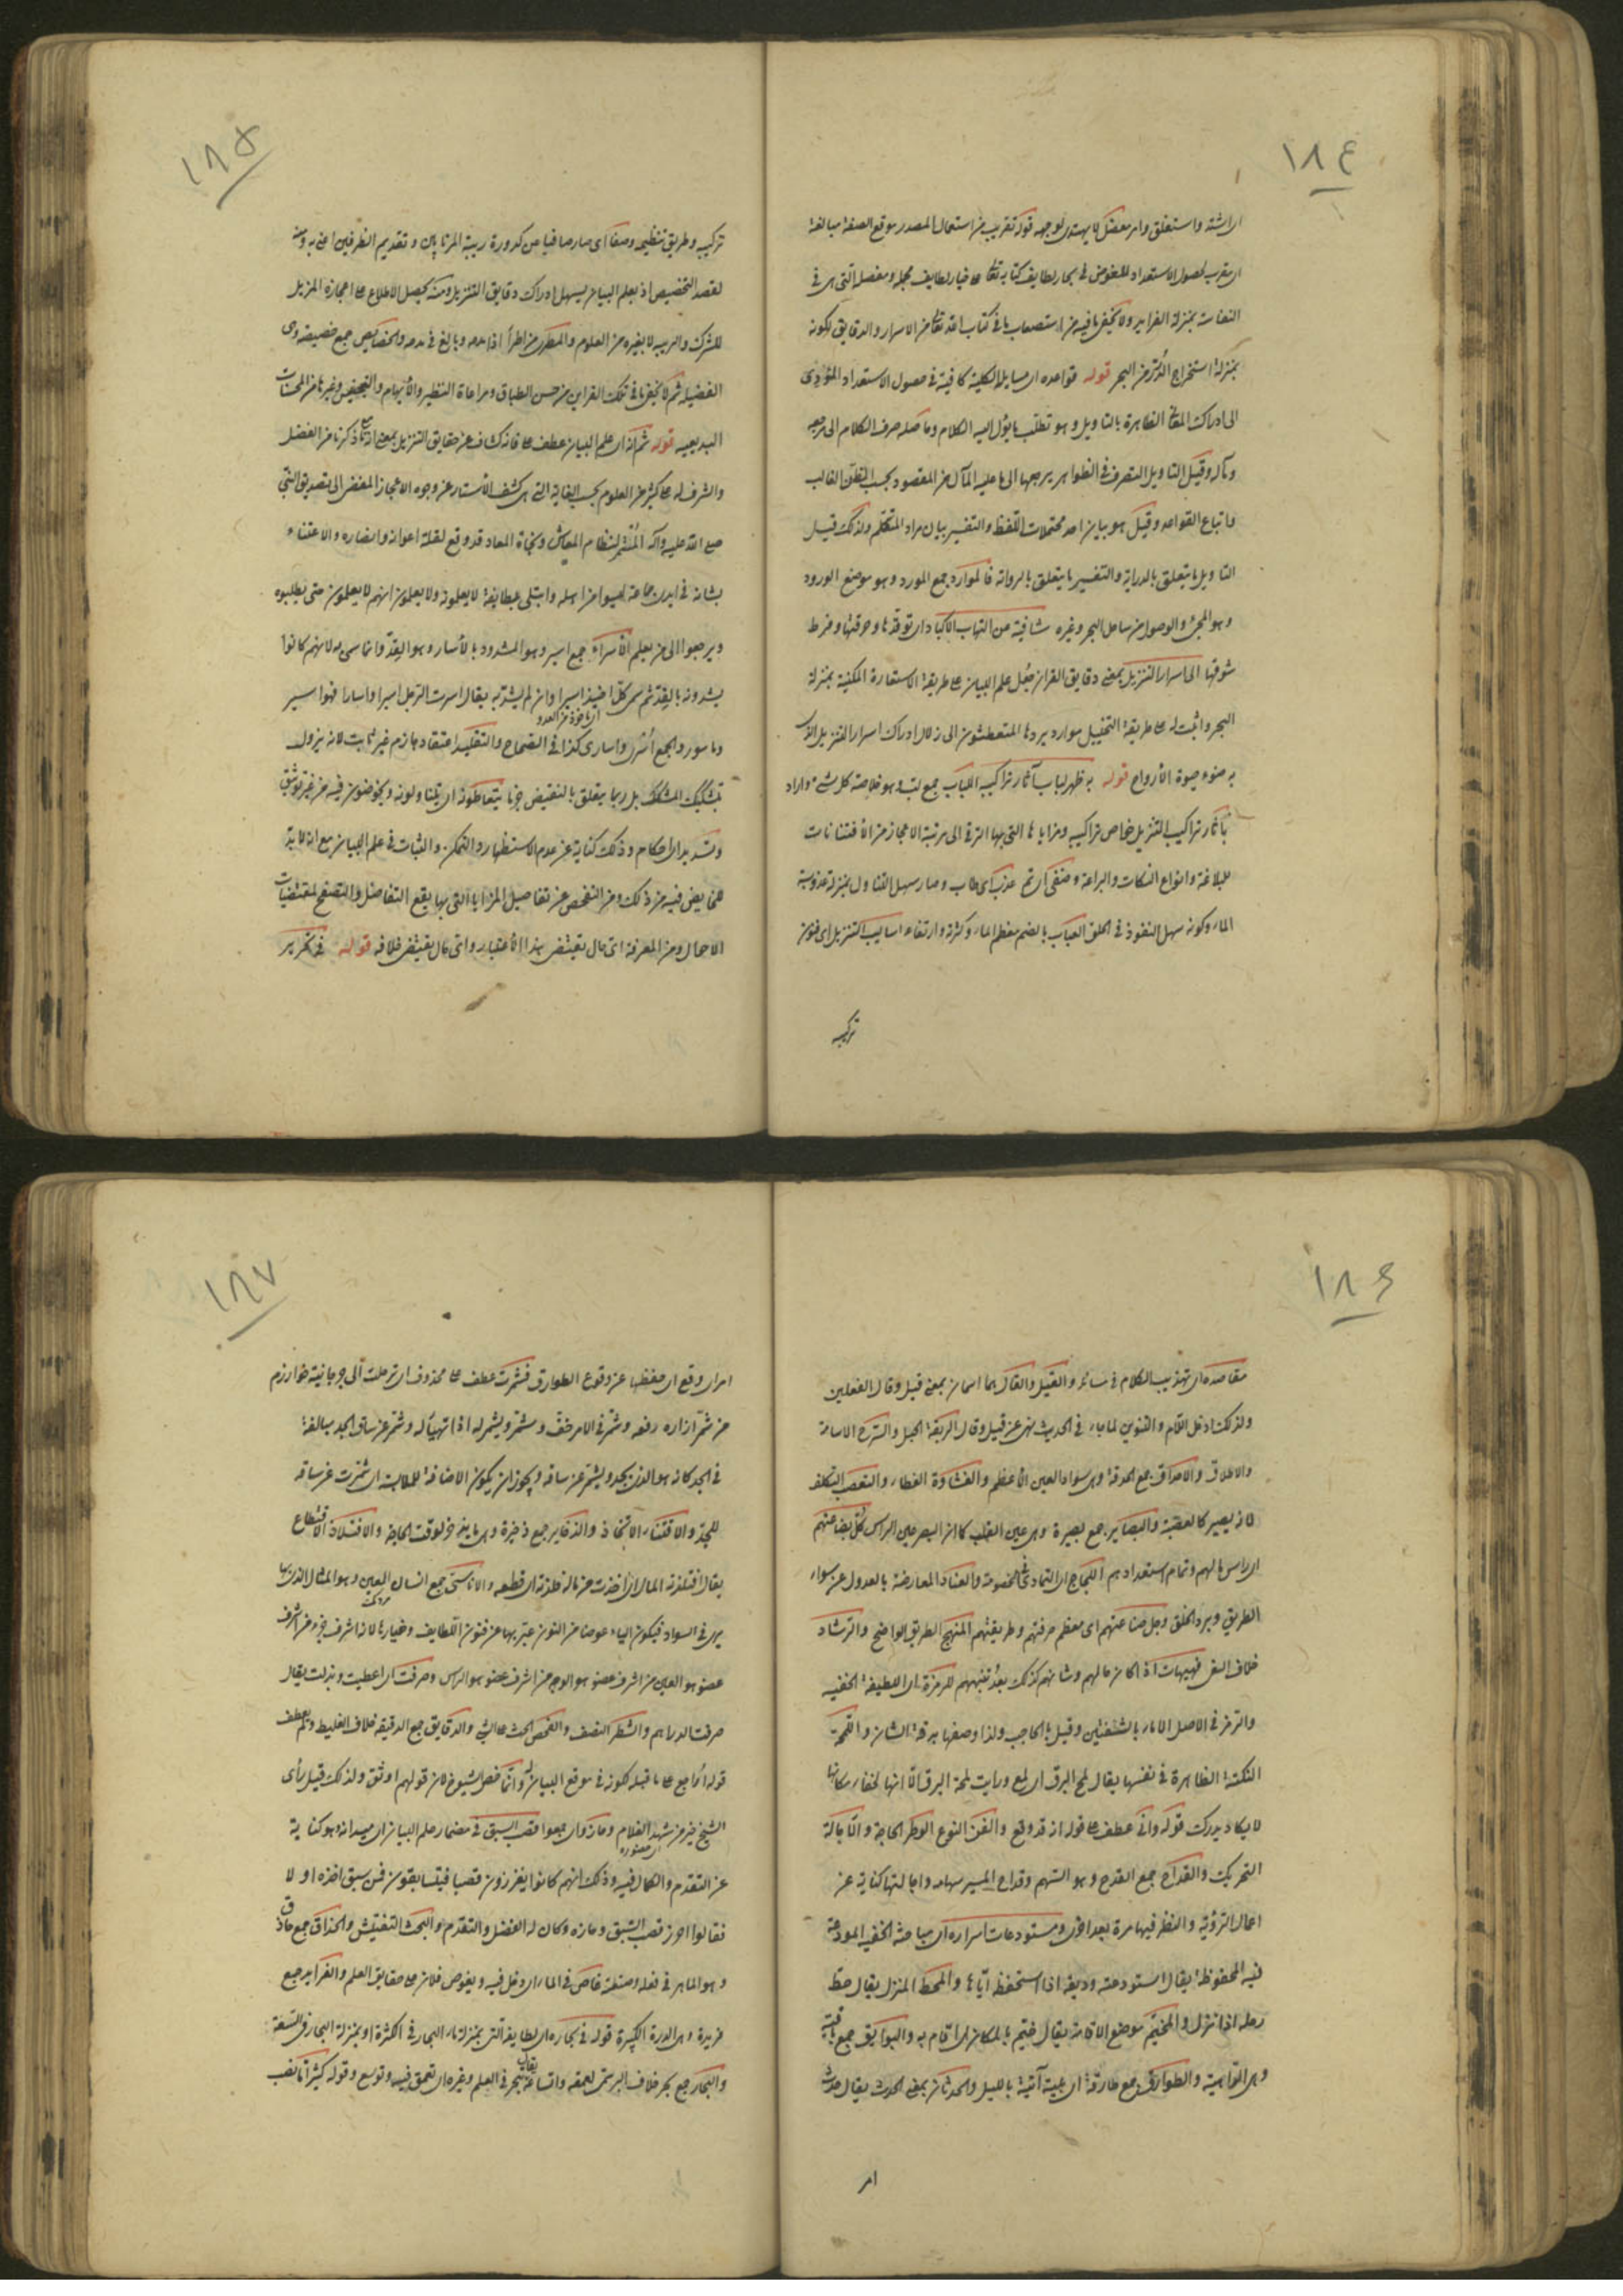 ١٨٤
اى اشتد واستغلق وامر معضل لا يهتدى لوجهه قوله تقريب من استعمال المصدر موقع الصفة مبالغة
اى مقرب لحصول الاستعداد للغوص فى بحار لطايف كتابه تعالى على خيار لطايف مجمله ومفصله التى هى فى
النفاسة بمنزلة الفرايد ولا يخفى ما فيه من استصعاب ما فى كتاب الله تعالى من الاسرار والدقايق لكونه
بمنزلة استخراج الدر من البحر قوله قواعده اى مسايله الكلية كافية فى حصول الاستعداد المؤدى
الى ادراك المعانى الظاهرة بالتاويل وهو تطلب ما يؤل اليه الكلام وحاصله صرف الكلام الى مرجعه
ومآله وقيل التاويل التصرف فى الظواهر يرجعها الى ما عليه المآل من المقصود بحسب الظن الغالب
واتباع القواعد وقيل هو بيان احد محتملات اللفظ والتفسير بيان مراد المتكلم ولذلك قيل
التاويل ما يتعلق بالدراية والتفسير ما يتعلق بالرواية فالموارد جمع المورد وهو موضع الورود
وهو المجئ والوصول من ساحل البحر وغيره شافية من التهاب الاكباد اى توقدها وحرقتها وفرط
شوقها الى اسرار التنزيل بمعنى دقايق القران جعل علم البيان على طريقة الاستعارة المكنية بمنزلة
البحر واثبت له على طريقة التخييل موارد يردها المتعطشون الى زلال ادراك اسرار التنزيل الذى
به منوء حيوة الارواح قوله به ظهر لباب آثار تراكيبه اللباب جمع لب وهو خلاصة كل شئ واراد
بآثار تراكيب التنزيل خواص تراكيبه ومزاياها التى بها الترقى الى مرتبة الاعجاز من الافتنانات
للبلاغة وانواع النكات والبراعة وصفى اى تم عذب اى طاب وصار سهل التناول بمنزلة عذوبة
الماء وكونه سهل النفوذ فى الحلق العباب بالضم معظم الماء وكثرة وارتفاعه اساليب التنزيل اى فنون
تركيبه
١٨٥
تركيبه وطريق تنظيمه وصفا اى صار صافيا من كدورة ريبة المرتابين وتقديم الظرفين اعنى به ومنه
لقصد التخصيص اذ بعلم البيان يسهل ادراك دقايق التنزيل ومنه يحصل الاطلاع على اعجازه المزيل
للشرك والريب لا بغيره من العلوم والمطرى من اطرأ اذا مدح وبالغ فى مدحه والخصايص جمع خصيصة وهى
الفضيلة ثم لا يخفى ما فى تلك القراين من حسن الطباق ومراعاة النظير والايهام والتجنيس وغيرها من المحسنات
البديعية قوله ثم انه اى علم البيان عطف على فانه كشاف عن حقايق التنزيل بمعنى انه مع ما ذكرنا من الفضل
والشرف له على كثير من العلوم بحسب الغاية التى هى كشف الاستار عن وجوه الاعجاز المفضى الى تصديق النبى
صلى الله عليه وآله المثمر لنظام المعاش ونجاة المعاد قد وقع لقلة اعوانه وانصاره والاعتناء
بشانه فى ايدى جماعة ليسوا من اهله وابتلى بطايفة لا يعلمونه ولا يعلمون انهم لا يعلمون حتى يطلبوه
ويرجعوا الى من يعلم الاسراء جمع اسير وهو المشدود بالأسار وهو القد وانما سمى به لانهم كانوا
يشدونه بالقد ثم سمى كل اخيذ اسيرا وان لم يشد به يقال اسرت الرجل اسرا واسارا فهو اسير
اى ماخوذ من العدو
وماسور والجمع أسرى واسارى كذا فى الصحاح والتقليد اعتقاد جازم غير ثابت لانه يزول
بتشكيك المشكك بل ربما يتعلق بالنقيض جزما يتعاطونه اى يتناولونه ويخوضون فيه من غير توثيق
وتسديد اى احكام وذلك كناية عن عدم الاستظهار والتمكن والثبات فى علم البيان مع انه لا بد
لمن يخوض فيه من ذلك ومن التفحص عن تفاصيل المزايا التى بها يقع التفاضل والتصفح لمقتضيات
الاحوال ومن المعرفة اى حال يقتضى هذا الاعتبار واى حال يقتضى خلافه قوله فى تحرير
١٨٦
مقاصده اى تهذيب الكلام فى مسائله والقيل والقال هما اسمان بمعنى قيل وقال الفعلين
ولذلك ادخل اللام والتنوين لما جاء فى الحديث نهى عن قيل وقال الربقة الحبل والسرح الاسامة
والاطلاق والاحداق جمع الحدقة وهى سواد العين الاعظم والغشاوة الغطاء والتعصب التكلف
لان يصير كالعصبة والبصاير جمع بصيرة وهى عين القلب كما ان البصر عين الراس كل بضاعتهم
اى راس مالهم وتمام استعدادهم اللجاج اى التمادى فى الخصومة والعناد المعارضة بالعدول عن سواء
الطريق وبرد الحق وجل صناعتهم اى معظم حرفتهم وطريقتهم المنهج الطريق الواضح والرشاد
خلاف الغى فهيهات اذا كان حالهم وشانهم كذلك بعد تنبههم للرمزة اى اللطيفة الخفية
والرمز فى الاصل الايماء بالشفتين وقيل بالحاجب ولذا وصفها بدقة الشان واللمحة
النكتة الظاهرة فى نفسها يقال لمح البرق اى لمع ورايت لمحة البرق الا انها لخفاء مكانها
لا يكاد يدرك قوله وانى عطف على قوله انه قد وقع والفن النوع الوطر الحاجة والاجالة
التحريك والقداح جمع القدح وهو السهم وقداح الميسر سهامه واجالتها كناية عن
اعمال الروية والنظر فيها مرة بعد اخرى ومستودعات اسراره اى مباحثه الخفية المودعة
فيه المحفوظة يقال استودعته وديعة اذا استحفظه اياها والمحط المنزل يقال حط
رحله اذا نزل والمخيم موضع الاقامة يقال خيم بالمكان اى اقام به والبوايق جمع بايقة
وهى الداهية والطوارق جمع طارقة اى مصيبة آتية بالليل والحدثان بمعنى الحدث يقال حدث
امر
١٨٧
امر اى وقع اى حفظها عن وقوع الطوارق فشمرت عطف على محذوف اى ترحلت الى جرجانية خوارزم
من شمر ازاره رفعه وشمر فى الامر خف وشمر وتشمر له اذا تهيأ له وشمر عن ساق الجد مبالغة
فى الجد كانه هو الذى يجد ويشمر عن ساقه ويجوز ان يكون الاضافة للملابسة اى شمرت عن ساقه
للجد والاقتناء الاتخاذ والذخاير جمع ذخيرة وهى ما يدخر لوقت الحاجة والافتلاذ الاقتطاع
يقال افتلذته المال اى اخذت من ماله فلذة اى قطعة والاناسى جمع انسان العين وهو المثال الذى بها
مردمك
يرى فى السواد فيكون الياء عوضا عن النون عبر بها عن فنون اللطايف وخيارها لانه اشرف جزء من اشرف
عضو هو العين من اشرف عضو هو الوجه من اشرف عضو هو الراس وصرفت اى اعطيت وبذلت يقال
صرفت الدراهم والشطر النصف والفحص البحث على الشئ والدقايق جمع الدقيقة خلاف الغليظ ولم يعطف
قوله اراجع على ما قبله لكونه فى موقع البيان له وانما خص الشيوخ لان قولهم اوثق ولذلك قيل رأى
الشيخ خير من مشهد الغلام وحازوا اى جمعوا قصب السبق فى مضمار علم البيان اى ميدانه وهو كناية
اى حضوره
عن التقدم والكمال فيه وذلك انهم كانوا يغرزون قصبا فيتسابقون فمن سبق اخذه اولا
فقالوا احرز قصب السبق وحازه وكان له الفضل والتقدم والبحث التفتيش والحذاق جمع حاذق
وهو الماهر فى فعله وصنعته غاص فى الماء اى دخل فيه ويغوص فلان على حقايق العلم والفرايد جمع
فريدة وهى الدرة الكبيرة قوله فى بحاره اى لطايفه التى بمنزلة ماء البحار فى الكثرة او بمنزلة البحار فى السعة
والبحار جمع بحر خلاف البر سمى لعمقه واتساعه يقال تبحر فى العلم وغيره اى تعمق فيه وتوسع وقوله كثيرا ما نصب